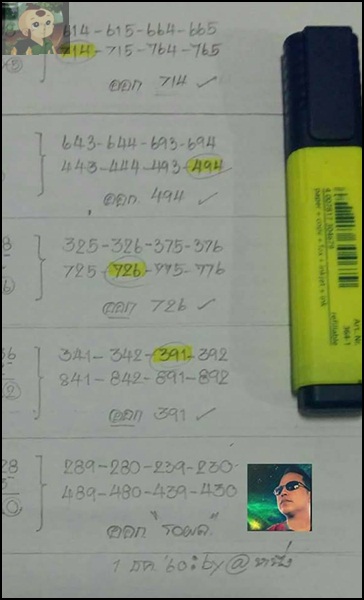 614-615-664-665
714-715-764-765
ออก 714 ✓
643-644-693-694
443-444-493-494
ออก 494 ✓
325-326-375-376
725-726-775-776
ออก 726 ✓
341-342-391-392
841-842-891-892
ออก 391 ✓
289-280-239-230
489-480-439-430
ออก "รอผล"
1 ธค '60: by @
4 007817 304676
paper + copy + fax + inkjet + ink
refillable
Art. Nr.
364-1